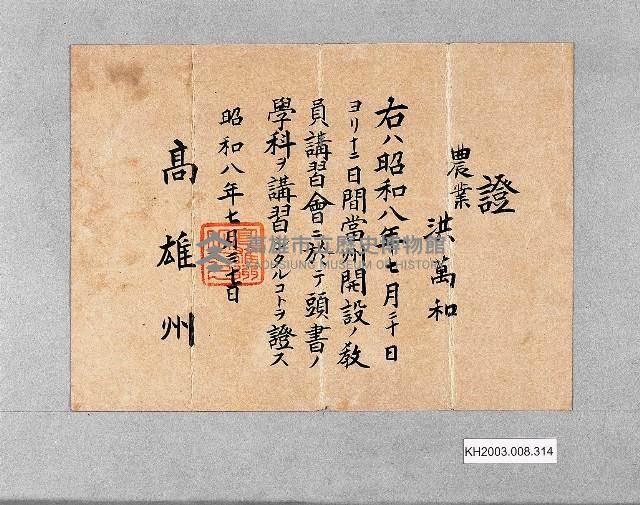 證
農業
洪萬和
右ハ昭和八年七月二十日
ヨリ十二日間當州開設ノ教
員講習會ニ於テ頭書ノ
學科ヲ講習シタルコトヲ證ス
昭和八年七月三十一日
高雄州
高雄市立歷史博物館
KAOHSIUNG MUSEUM OF HISTORY
KH2003.008.314